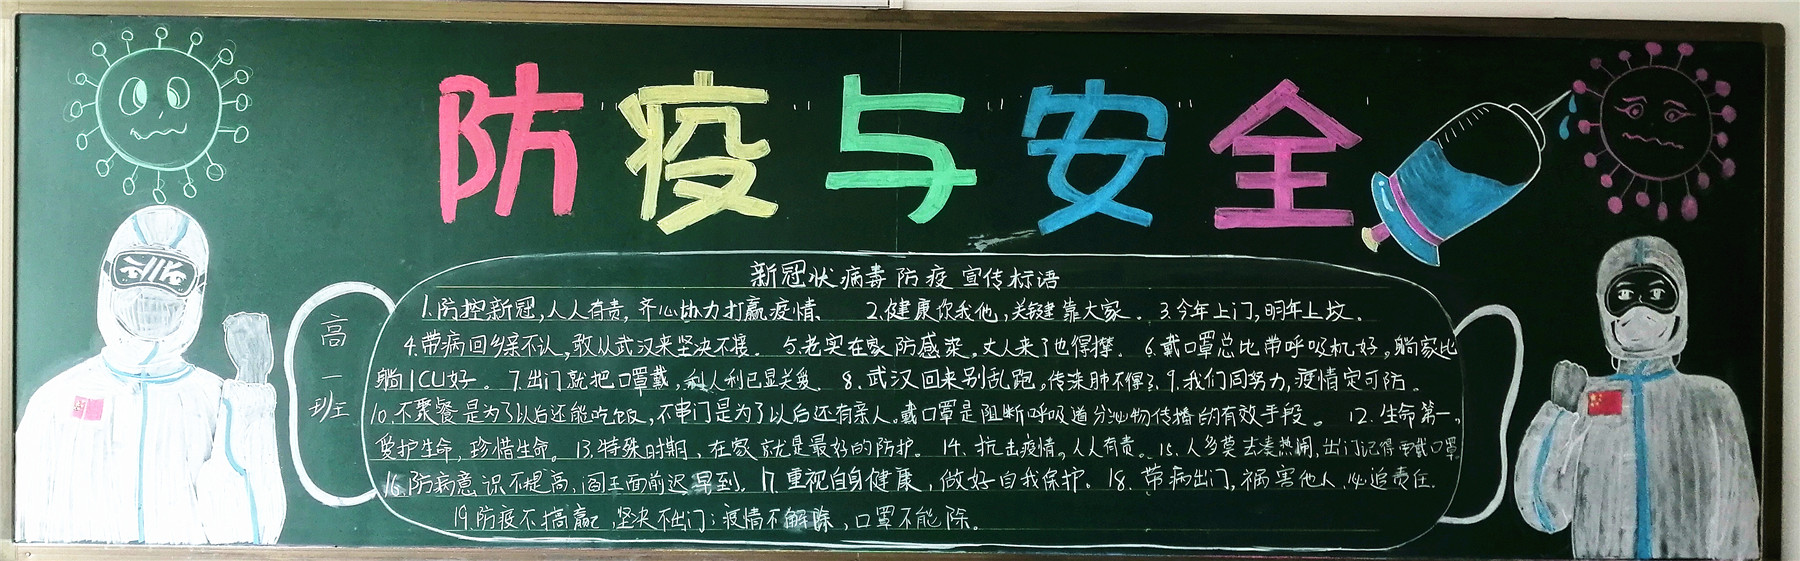 防疫与安全
高一班
新冠状病毒防疫宣传标语
1.防控新冠,人人有责,齐心协力打赢疫情、 2.健康你我他,关键靠大家。 3.今年上门,明年上坟。
4.带病回乡亲不认,敢从武汉来坚决不接。 5.老实在家防感染,丈人来了也得撵。 6.戴口罩总比带呼吸机好,躺家比
躺ICU好。 7.出门就把口罩戴,利人利己显关爱 8.武汉回来别乱跑,传染肺不得了、9.我们同努力,疫情定可防。
10.不聚餐是为了以后还能吃饭,不串门是为了以后还有亲人。戴口罩是阻断呼吸道分泌物传播的有效手段。 12.生命第一,
爱护生命,珍惜生命。 13.特殊时期,在家就是最好的防护。 14.抗击疫情,人人有责。 15.人多莫去凑热闹,出门记得要戴口罩
16.防病意识不提高,阎王面前迟早到。17.重视自身健康,做好自我保护。 18.带病出门,祸害他人、必追责任.
19.防疫不搞赢,坚决不出门;疫情不解除,口罩不能除。